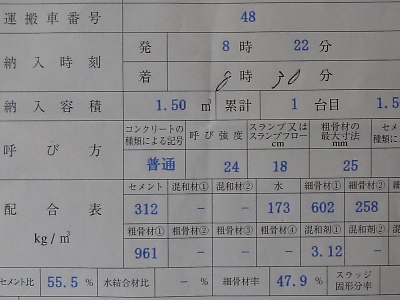 運搬車番号 48
納入時刻 発 8時 22分
着 8 30分
納入容積 1.50 m³ 累計 1 台目 1.5
呼び方 コンクリートの種類による記号 呼び強度 スランプ又はスランプフロー cm 粗骨材の最大寸法 mm セメ 種類
普通 24 18 25
配合表 kg/m³
セメント 混和材① 混和材② 水 細骨材① 細骨材②
312 − − 173 602 258
粗骨材① 粗骨材② 粗骨材③ 混和剤① 混和剤②
961 − − − 3.12 −
セメント比 55.5 % 水結合材比 − % 細骨材率 47.9 % スラッジ固形分率